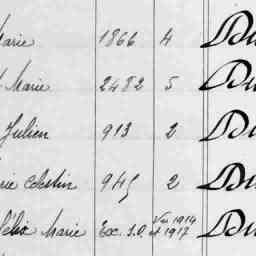 Marie 1866 4 Du
Marie 2482 5 Du
Julien 913 2 Du
rie Célestin 945 2 Du
Félix Marie Exc. S.O. Vu 1914 et 1917 Du